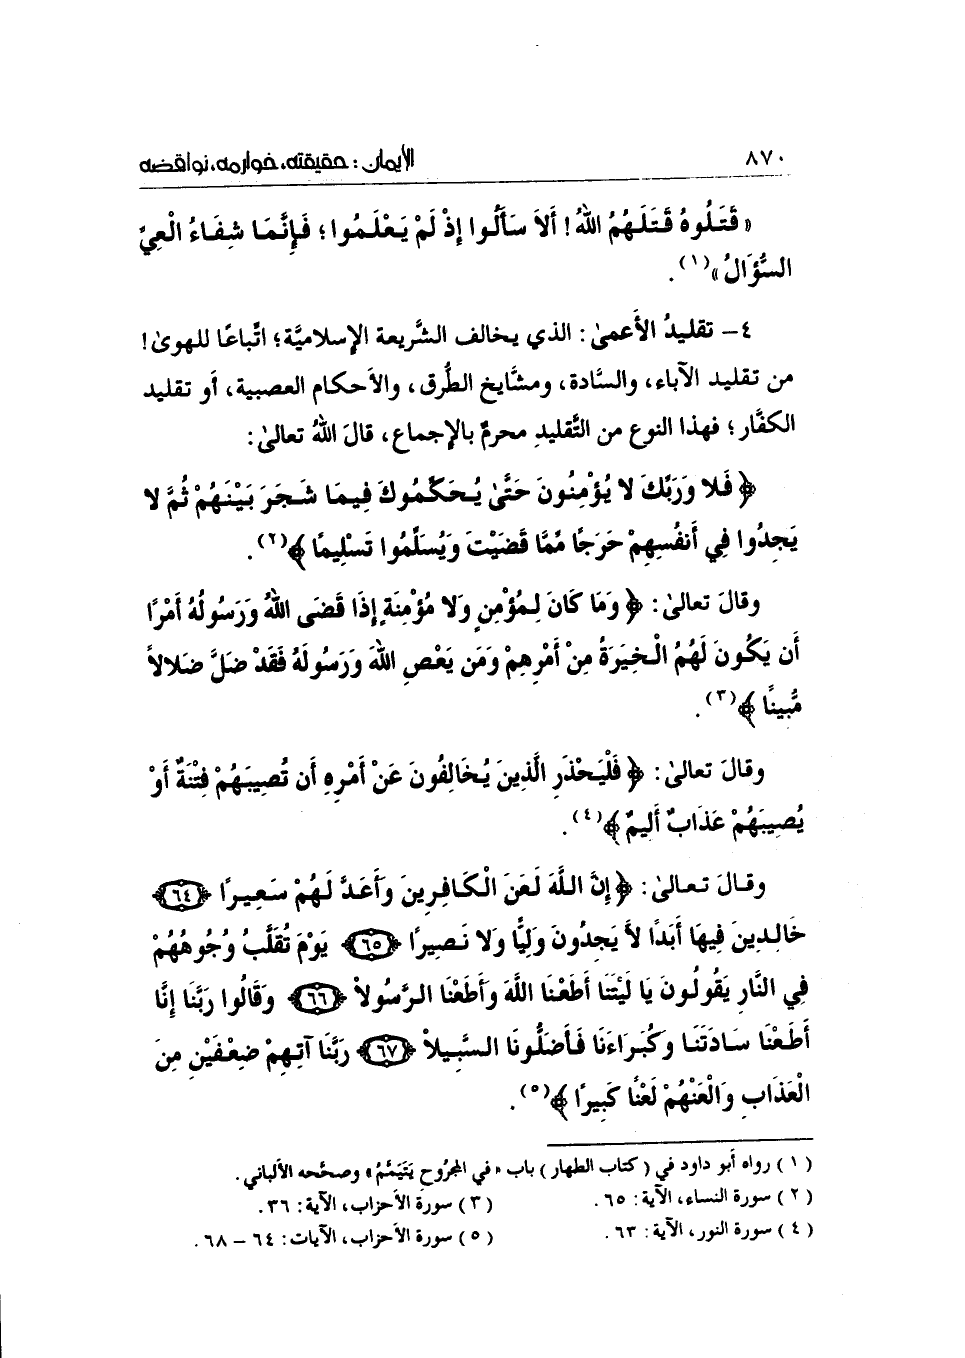 ٨٧٠ الإيمان: حقيقته، خوارمه، نواقضه
« قَتَلُوهُ قَتَلَهُمُ اللهُ! ألاَ سَأَلُوا إذْ لَمْ يَعْلَمُوا؛ فَإِنَّمَا شِفَاءُ الْعِيِّ
السُّؤَالُ »(١).
٤- تقليدُ الأَعمىٰ: الذي يخالف الشَّريعة الإِسلاميَّة؛ اتِّباعًا للهوىٰ!
من تقليد الآباء، والسَّادة، ومشَّايخ الطُّرق، والأَحكام العصبية، أَو تقليد
الكفَّار؛ فهذا النوع من التَّقليدِ محرمٌ بالإجماع، قالَ اللهُ تعالىٰ:
﴿ فَلا وَرَبِّكَ لا يُؤْمِنُونَ حَتَّىٰ يُحَكِّمُوكَ فِيمَا شَجَرَ بَيْنَهُمْ ثُمَّ لا
يَجِدُوا فِي أَنفُسِهِمْ حَرَجًا مِّمَّا قَضَيْتَ وَيُسَلِّمُوا تَسْلِيمًا ﴾(٢).
وقالَ تعالىٰ: ﴿ وَمَا كَانَ لِمُؤْمِنٍ وَلا مُؤْمِنَةٍ إِذَا قَضَى اللهُ وَرَسُولُهُ أَمْرًا
أَن يَكُونَ لَهُمُ الْخِيَرَةُ مِنْ أَمْرِهِمْ وَمَن يَعْصِ اللهَ وَرَسُولَهُ فَقَدْ ضَلَّ ضَلالاً
مُّبِينًا ﴾(٣).
وقالَ تعالىٰ: ﴿ فَلْيَحْذَرِ الَّذِينَ يُخَالِفُونَ عَنْ أَمْرِهِ أَن تُصِيبَهُمْ فِتْنَةٌ أَوْ
يُصِيبَهُمْ عَذَابٌ أَلِيمٌ ﴾(٤).
وقالَ تعالىٰ: ﴿ إِنَّ اللَّهَ لَعَنَ الْكَافِرِينَ وَأَعَدَّ لَهُمْ سَعِيرًا ﴿٦٤﴾
خَالِدِينَ فِيهَا أَبَدًا لاَّ يَجِدُونَ وَلِيًّا وَلا نَصِيرًا ﴿٦٥﴾ يَوْمَ تُقَلَّبُ وُجُوهُهُمْ
فِي النَّارِ يَقُولُونَ يَا لَيْتَنَا أَطَعْنَا اللَّهَ وَأَطَعْنَا الرَّسُولاْ ﴿٦٦﴾ وَقَالُوا رَبَّنَا إِنَّا
أَطَعْنَا سَادَتَنَا وَكُبَرَاءَنَا فَأَضَلُّونَا السَّبِيلاْ ﴿٦٧﴾ رَبَّنَا آتِهِمْ ضِعْفَيْنِ مِنَ
الْعَذَابِ وَالْعَنْهُمْ لَعْنًا كَبِيرًا ﴾(٥).
(١) رواه أبو داود في (كتاب الطهار) باب «في المَجْرُوحِ يَتَيَمَّمُ» وصحَّحه الألباني.
(٢) سورة النساء، الآية: ٦٥. (٣) سورة الأحزاب، الآية: ٣٦.
(٤) سورة النور، الآية: ٦٣. (٥) سورة الأحزاب، الآيات: ٦٤ - ٦٨.